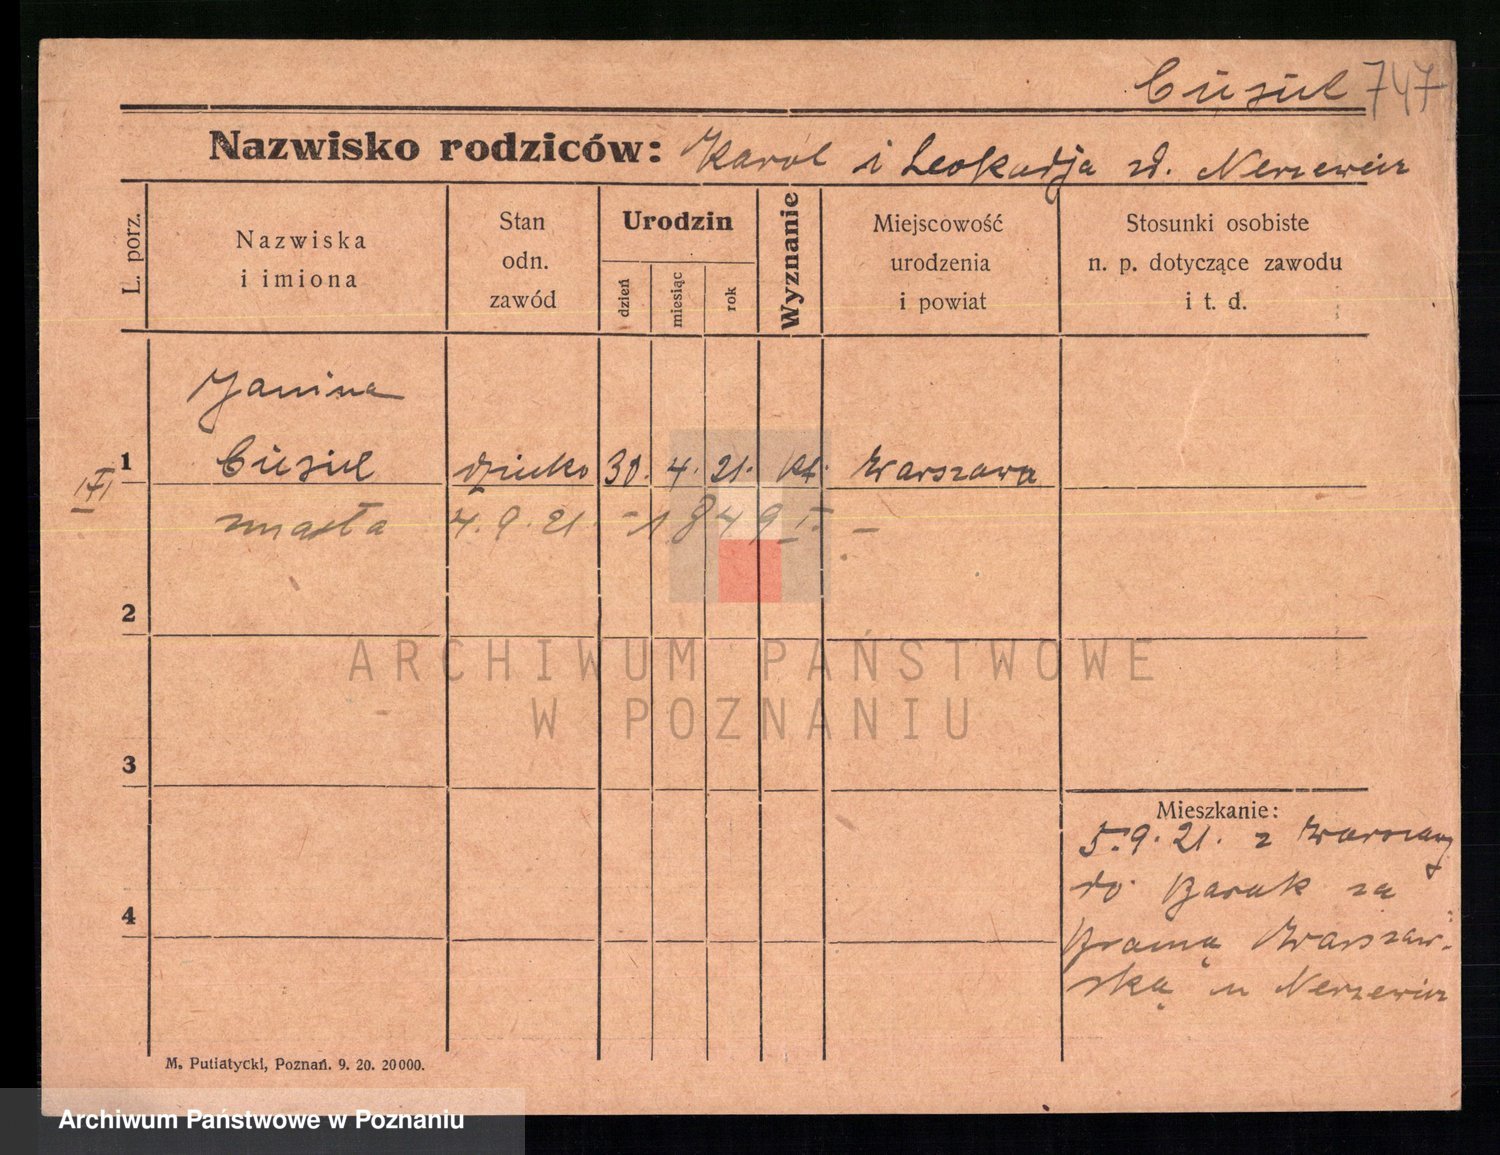 Ciesiel 747
Nazwisko rodziców: Karol i Leokadja zd. Nerzewicz
L. porz.
Nazwiska
i imiona
Stan
odn.
zawód
Urodzin
dzień
miesiąc
rok
Wyznanie
Miejscowość
urodzenia
i powiat
Stosunki osobiste
n. p. dotyczące zawodu
i t. d.
Janina
1 Ciesiel dziecko 30. 4. 21. kt. Warszawa
zmarła 4. 9. 21. - 1849 I. -
2
3
4
Mieszkanie:
5. 9. 21. z Warszawy
do Barak za
Bramą Warszaw-
ską u Nerzewicz
M. Putiatycki, Poznań. 9. 20. 20000.
ARCHIWUM PAŃSTWOWE
W POZNANIU
Archiwum Państwowe w Poznaniu